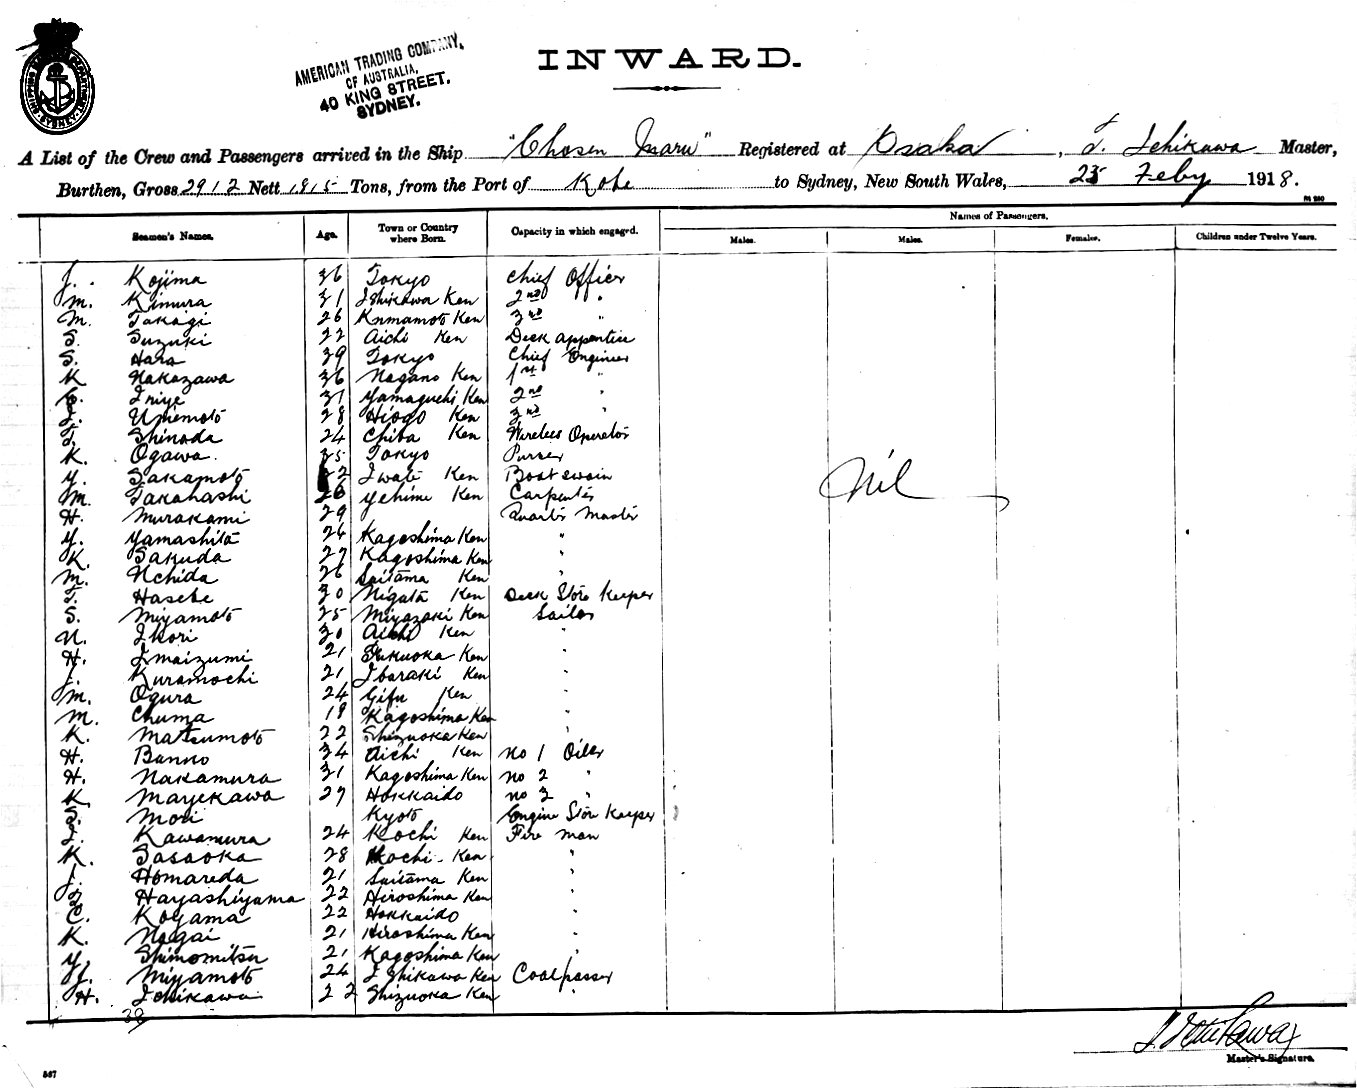 SHIPPING DEPARTMENT SYDNEY
AMERICAN TRADING COMPANY,
OF AUSTRALIA,
40 KING STREET.
SYDNEY.
INWARD.
A List of the Crew and Passengers arrived in the Ship "Chosen Maru" Registered at Osaka, T. Ichikawa Master,
Burthen, Gross 2912 Nett 1815 Tons, from the Port of Kobe to Sydney, New South Wales, 25 Feby 1918.
Names of Passengers.
Seamen's Names. Age. Town or Country where Born. Capacity in which engaged. Males. Males. Females. Children under Twelve Years.
J. Kojima 36 Tokyo Chief Officer
M. Kimura 31 Ishikawa Ken 2nd "
M. Takagi 26 Kumamoto Ken 3rd "
S. Suzuki 22 Aichi Ken Deck apprentice
S. Hara 39 Tokyo Chief Engineer
K Nakazawa 36 Nagano Ken 1st "
Iriye 31 Yamaguchi Ken 2nd "
Umemoto 28 Hiogo Ken 3rd "
T. Shinoda 24 Chiba Ken Wireless Operator
K. Ogawa 35 Tokyo Purser
Y. Sakamoto Iwate Ken Boatswain
M. Takahashi 26 Yehime Ken Carpenter
H. Murakami 29 Quarter Master
Nil
Y. Yamashita 26 Kagoshima Ken "
K. Sakuda 27 Kagoshima Ken "
M. Uchida 26 Saitama Ken "
T. Hasebe 30 Nigata Ken Deck Store Keeper
S. Miyamoto 25 Miyazaki Ken Sailor
N. Ikori 30 Aichi Ken "
H. Imaizumi 21 Fukuoka Ken "
J. Kuramochi 21 Ibaraki Ken "
M. Ogura 24 Gifu Ken "
M. Chuma 19 Kagoshima Ken "
K. Matsumoto 22 Shizuoka Ken "
H. Banno 34 Aichi Ken No 1 Oiler
H. Nakamura 31 Kagoshima Ken No 2 "
K. Mayekawa 27 Hokkaido No 3 "
S. Mori Kyoto Engine Store Keeper
Kawamura 24 Kochi Ken Fire man
K. Sasaoka 28 Kochi Ken "
J. Homareda 21 Saitama Ken "
Hayashiyama 22 Hiroshima Ken "
C. Koyama 22 Hokkaido "
K. Nagai 21 Hiroshima Ken "
Y. Shimomitsu 21 Kagoshima Ken "
Miyamoto 24 Ishikawa Ken Coal passer
H. Ichikawa 22 Shizuoka Ken "
38
T. Ichikawa
Master's Signature.
587